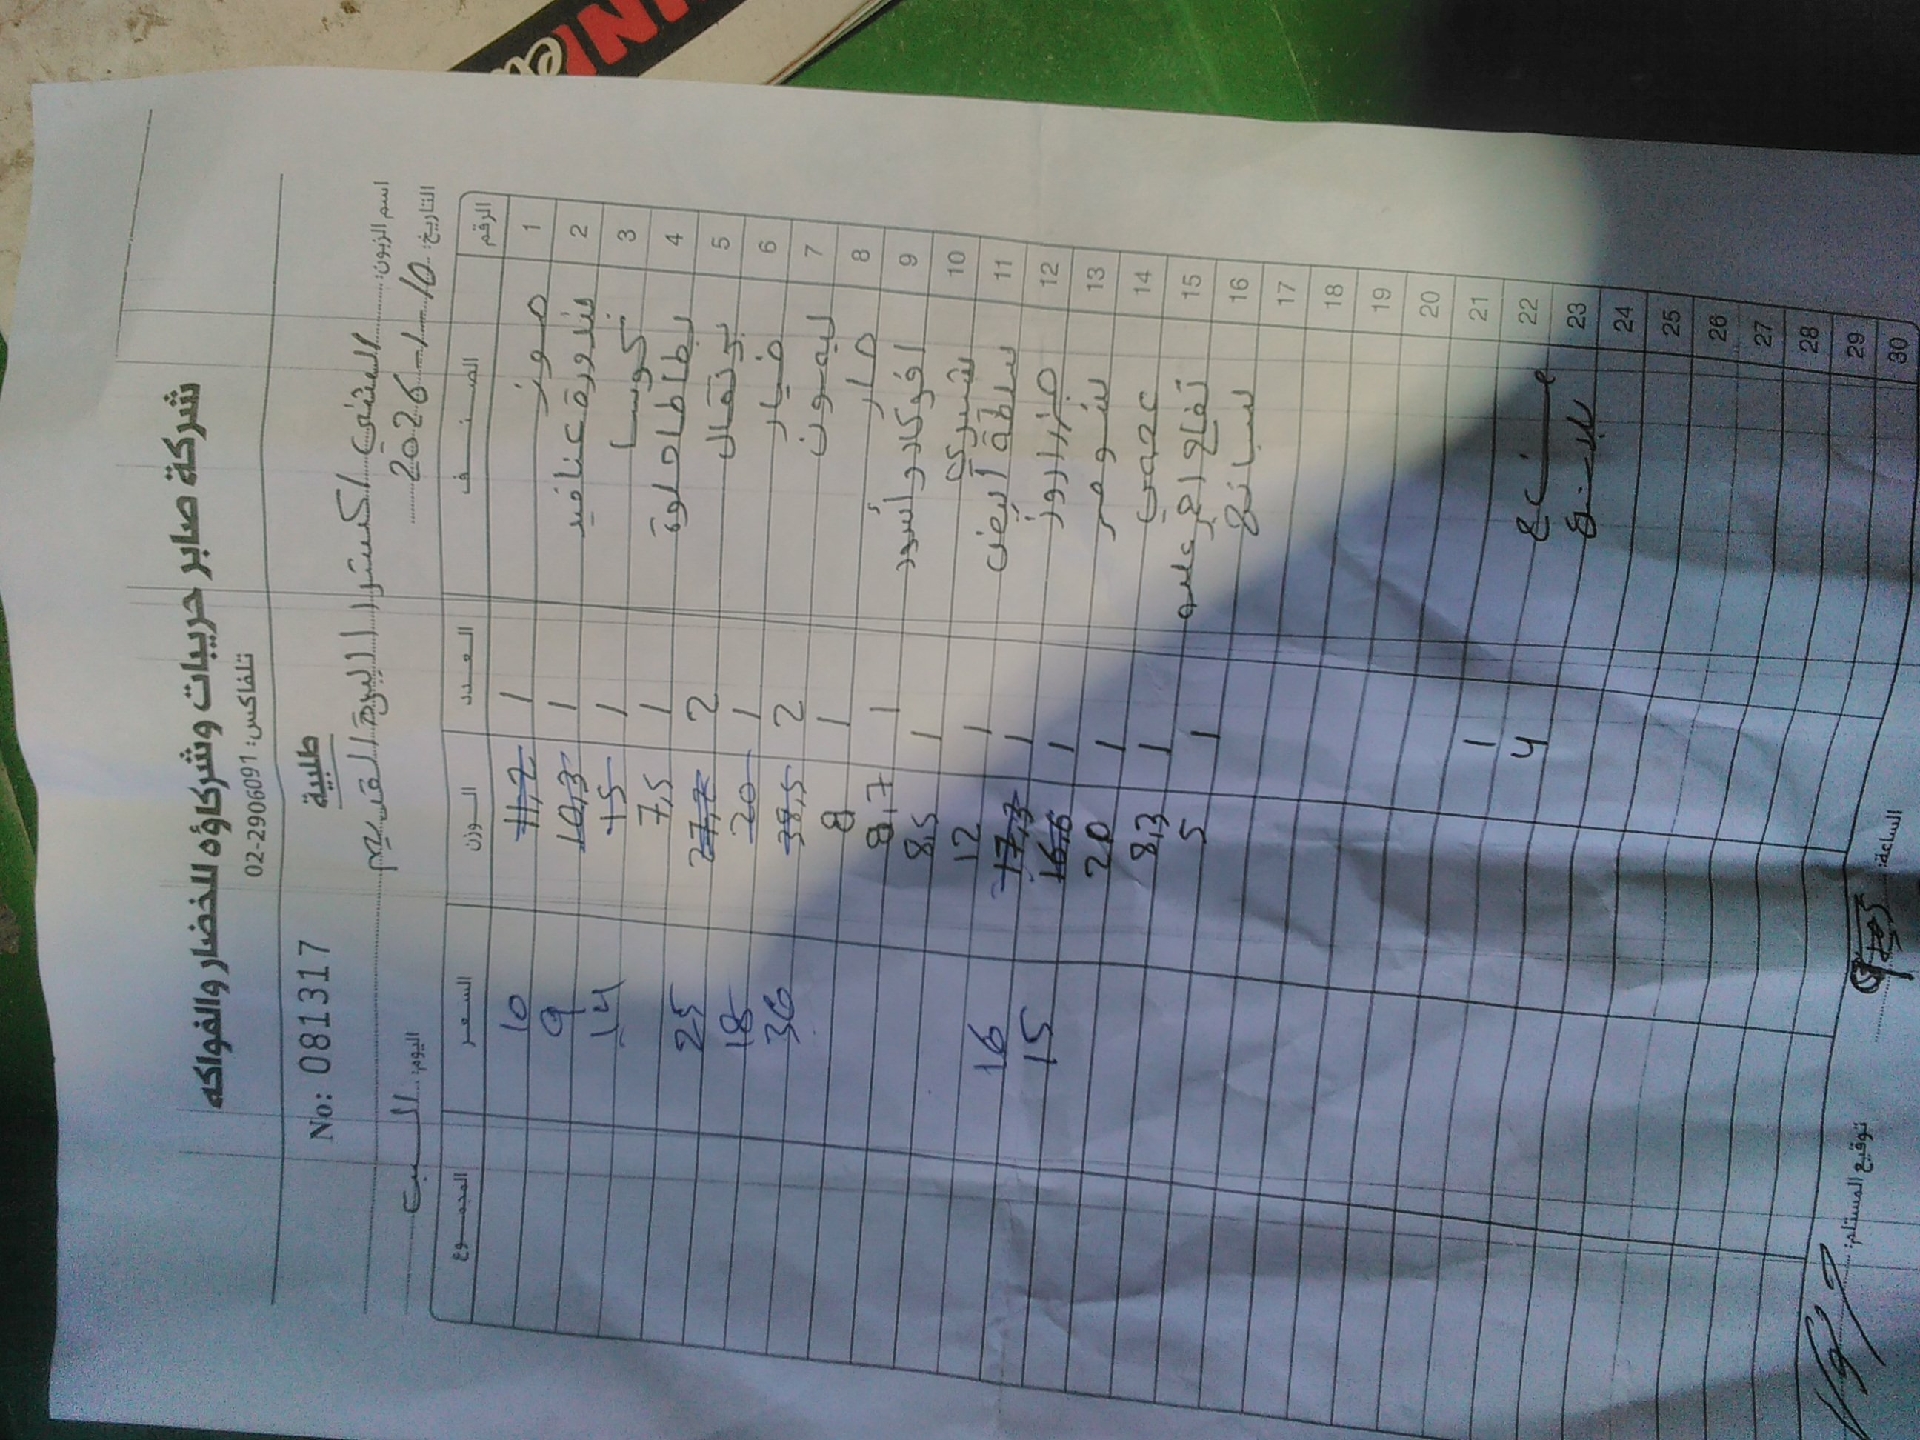 شركة صابر حريبات وشركاؤه للخضار والفواكه
تلفاكس: 02-2906091
طلبية
No: 081317
اسم الزبون: الشني اكسترا البيرة القديم
التاريخ: 10-1-2026 اليوم: السبت
الرقم الصنف العدد الوزن السعر المجموع
1 موز 1 11,2 10
2 بندورة عناقيد 1 10,3 9
3 كوسا 1 15 14
4 بطاطا حلوة 1 7,5
5 برتقال 2 27,2 25
6 خيار 1 20 18
7 ليمون 2 38,5 36
8 1 8
9 افوكادو أسود 1 8,7
10 1 8,5
11 سلطة أبيض 1 12
12 1 17,3 16
13 شومر 1 16,6 15
14 1 20
15 تفاح احمر 1 8,3
16 سبانخ 1 5
17
18
19
20
21
22 1
23 4
24
25
26
27
28
29
30
توقيع المستلم: الساعة: